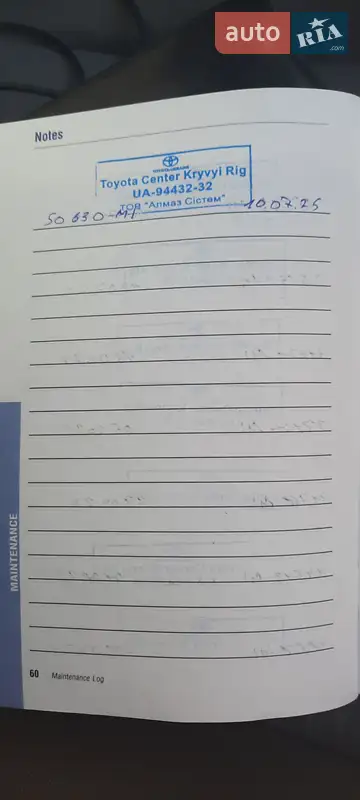 auto RIA .com
Notes
TOYOTA-UKRAINE
Toyota Center Kryvyi Rig
UA-94432-32
ТОВ "Алмаз Сістем"
50 630-MI 10.07.25
MAINTENANCE
60 Maintenance Log